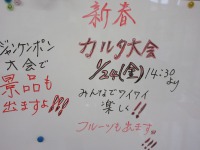 新春
カルタ大会
1/24(金)14:30より
みんなでワイワイ
楽しく!!
フルーツも出ます。!!
ジャンケンポン
大会で
景品も
出ますよ!!!